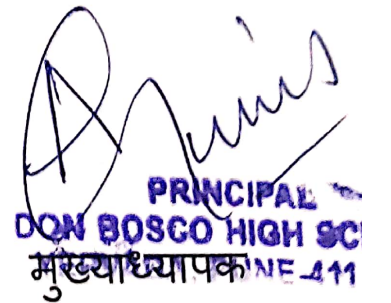 PRINCIPAL
DON BOSCO HIGH SC
मुख्याध्यापक NE-411